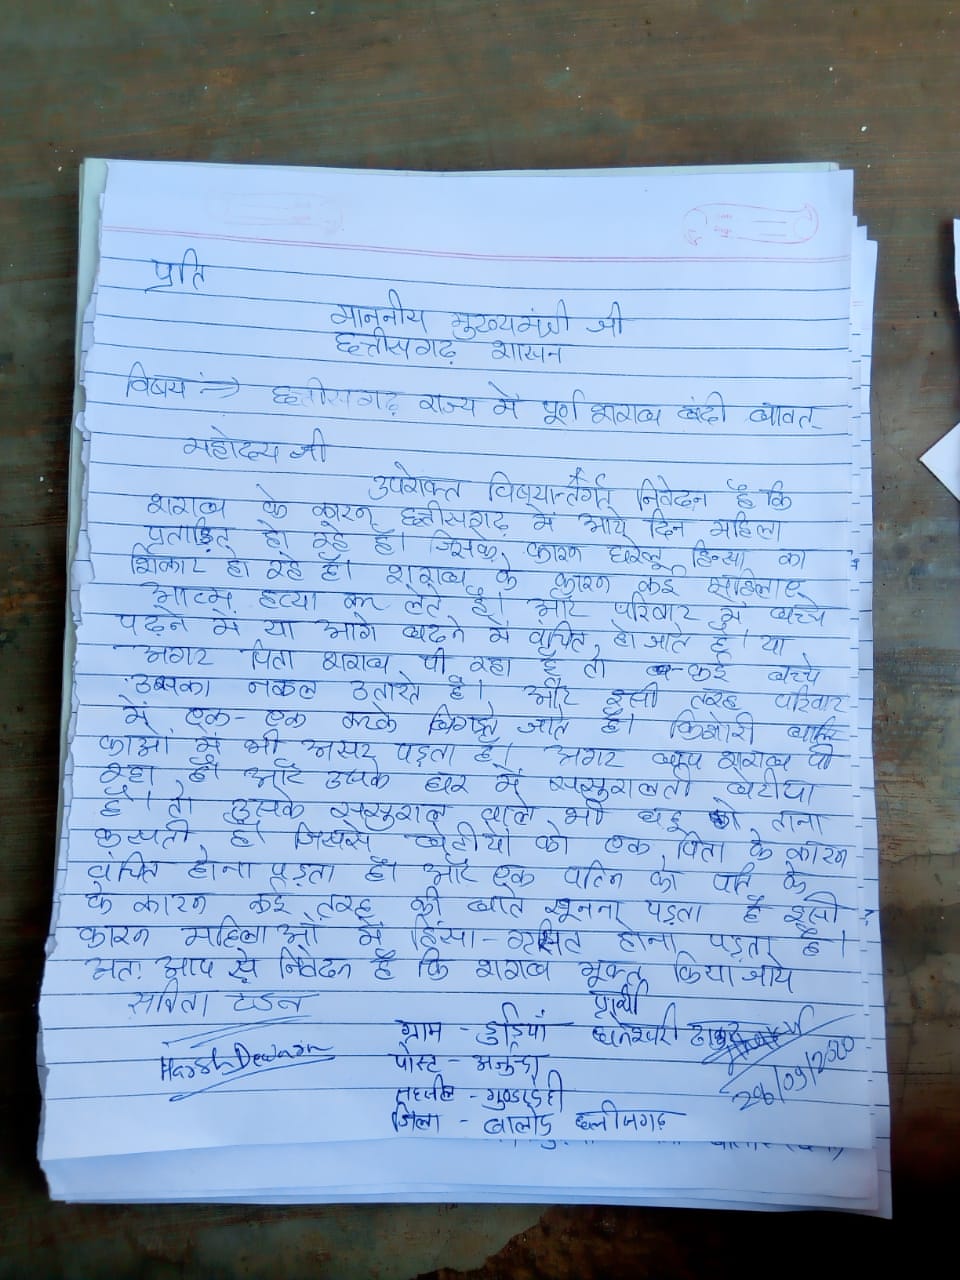 प्रति
माननीय मुख्यमंत्री जी
छत्तीसगढ़ शासन
विषय :-> छत्तीसगढ़ राज्य में पूर्ण शराब बंदी बावत-
महोदय जी
उपरोक्त विषयान्तर्गत निवेदन है कि
शराब के कारन छत्तीसगढ़ में आये दिन महिला
प्रताड़ित हो रहे है। जिसके कारन घरेलू हिन्सा का
शिकार हो रहे है। शराब के कारन कई महिलाए
आत्म हत्या कर लेते है। और परिवार में बच्चे
पढ़ने में या आगे बढ़ने में वंचित हो जाते है। या
अगर पिता शराब पी रहा है तो कई बच्चे
उसका नकल उतारते है। और इसी तरह परिवार
में एक-एक करके बिगड़ते जाते है। किशोरी बालि
काओं में भी असर पड़ता है। अगर बाप शराब पी
रहा है। और उसके घर में ससुरालती बेटीया
है। तो उसके ससुराल वाले भी बहू को ताना
कसती है। जिससे बेटीयों को एक पिता के कारन
वंचित होना पड़ता है। और एक पत्नि को पति के
के कारन कई तरह की बाते सूनना पड़ता है इसी
कारन महिलाओ में हिंसा-ग्रसित होना पड़ता है।
अतः आप से निवेदन है कि शराब मूक्त किया जाये
सविता टंडन प्रार्थी
ग्राम - डुड़िया धनेश्वरी ठाकुर
Harsh Dewan पोस्ट -
26/09/2020
तहसील - गुण्डरदेही
जिला - बालोद छत्तीसगढ़